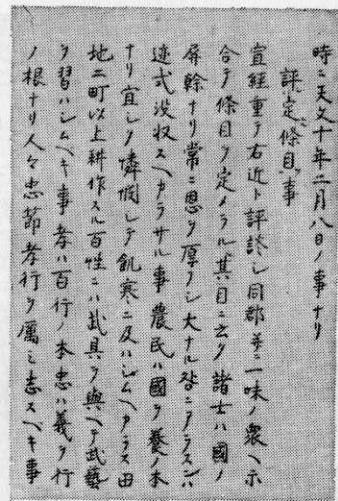 時ニ天文十年二月八日ノ事ナリ
評定條目ノ事
宣経重テ右近ト評談シ同郡并ニ一味ノ衆ヘ示
合テ條目ヲ定メラル其目ニ云ク諸士ハ國ノ
屏幹ナリ常ニ恩ヲ厚クシ大ナル咎ニアラスンハ
跡式没収スヘカラサル事農民ハ國ヲ養ノ本
ナリ宜シク憐憫シテ飢寒ニ及ハシムヘカラス田
地二町以上耕作スル百性ニハ武具ヲ與ヘテ武藝
ヲ習ハシムベキ事孝ハ百行ノ本忠ハ義ヲ行
ノ根ナリ人々忠節孝行ヲ属ミ志スベキ事